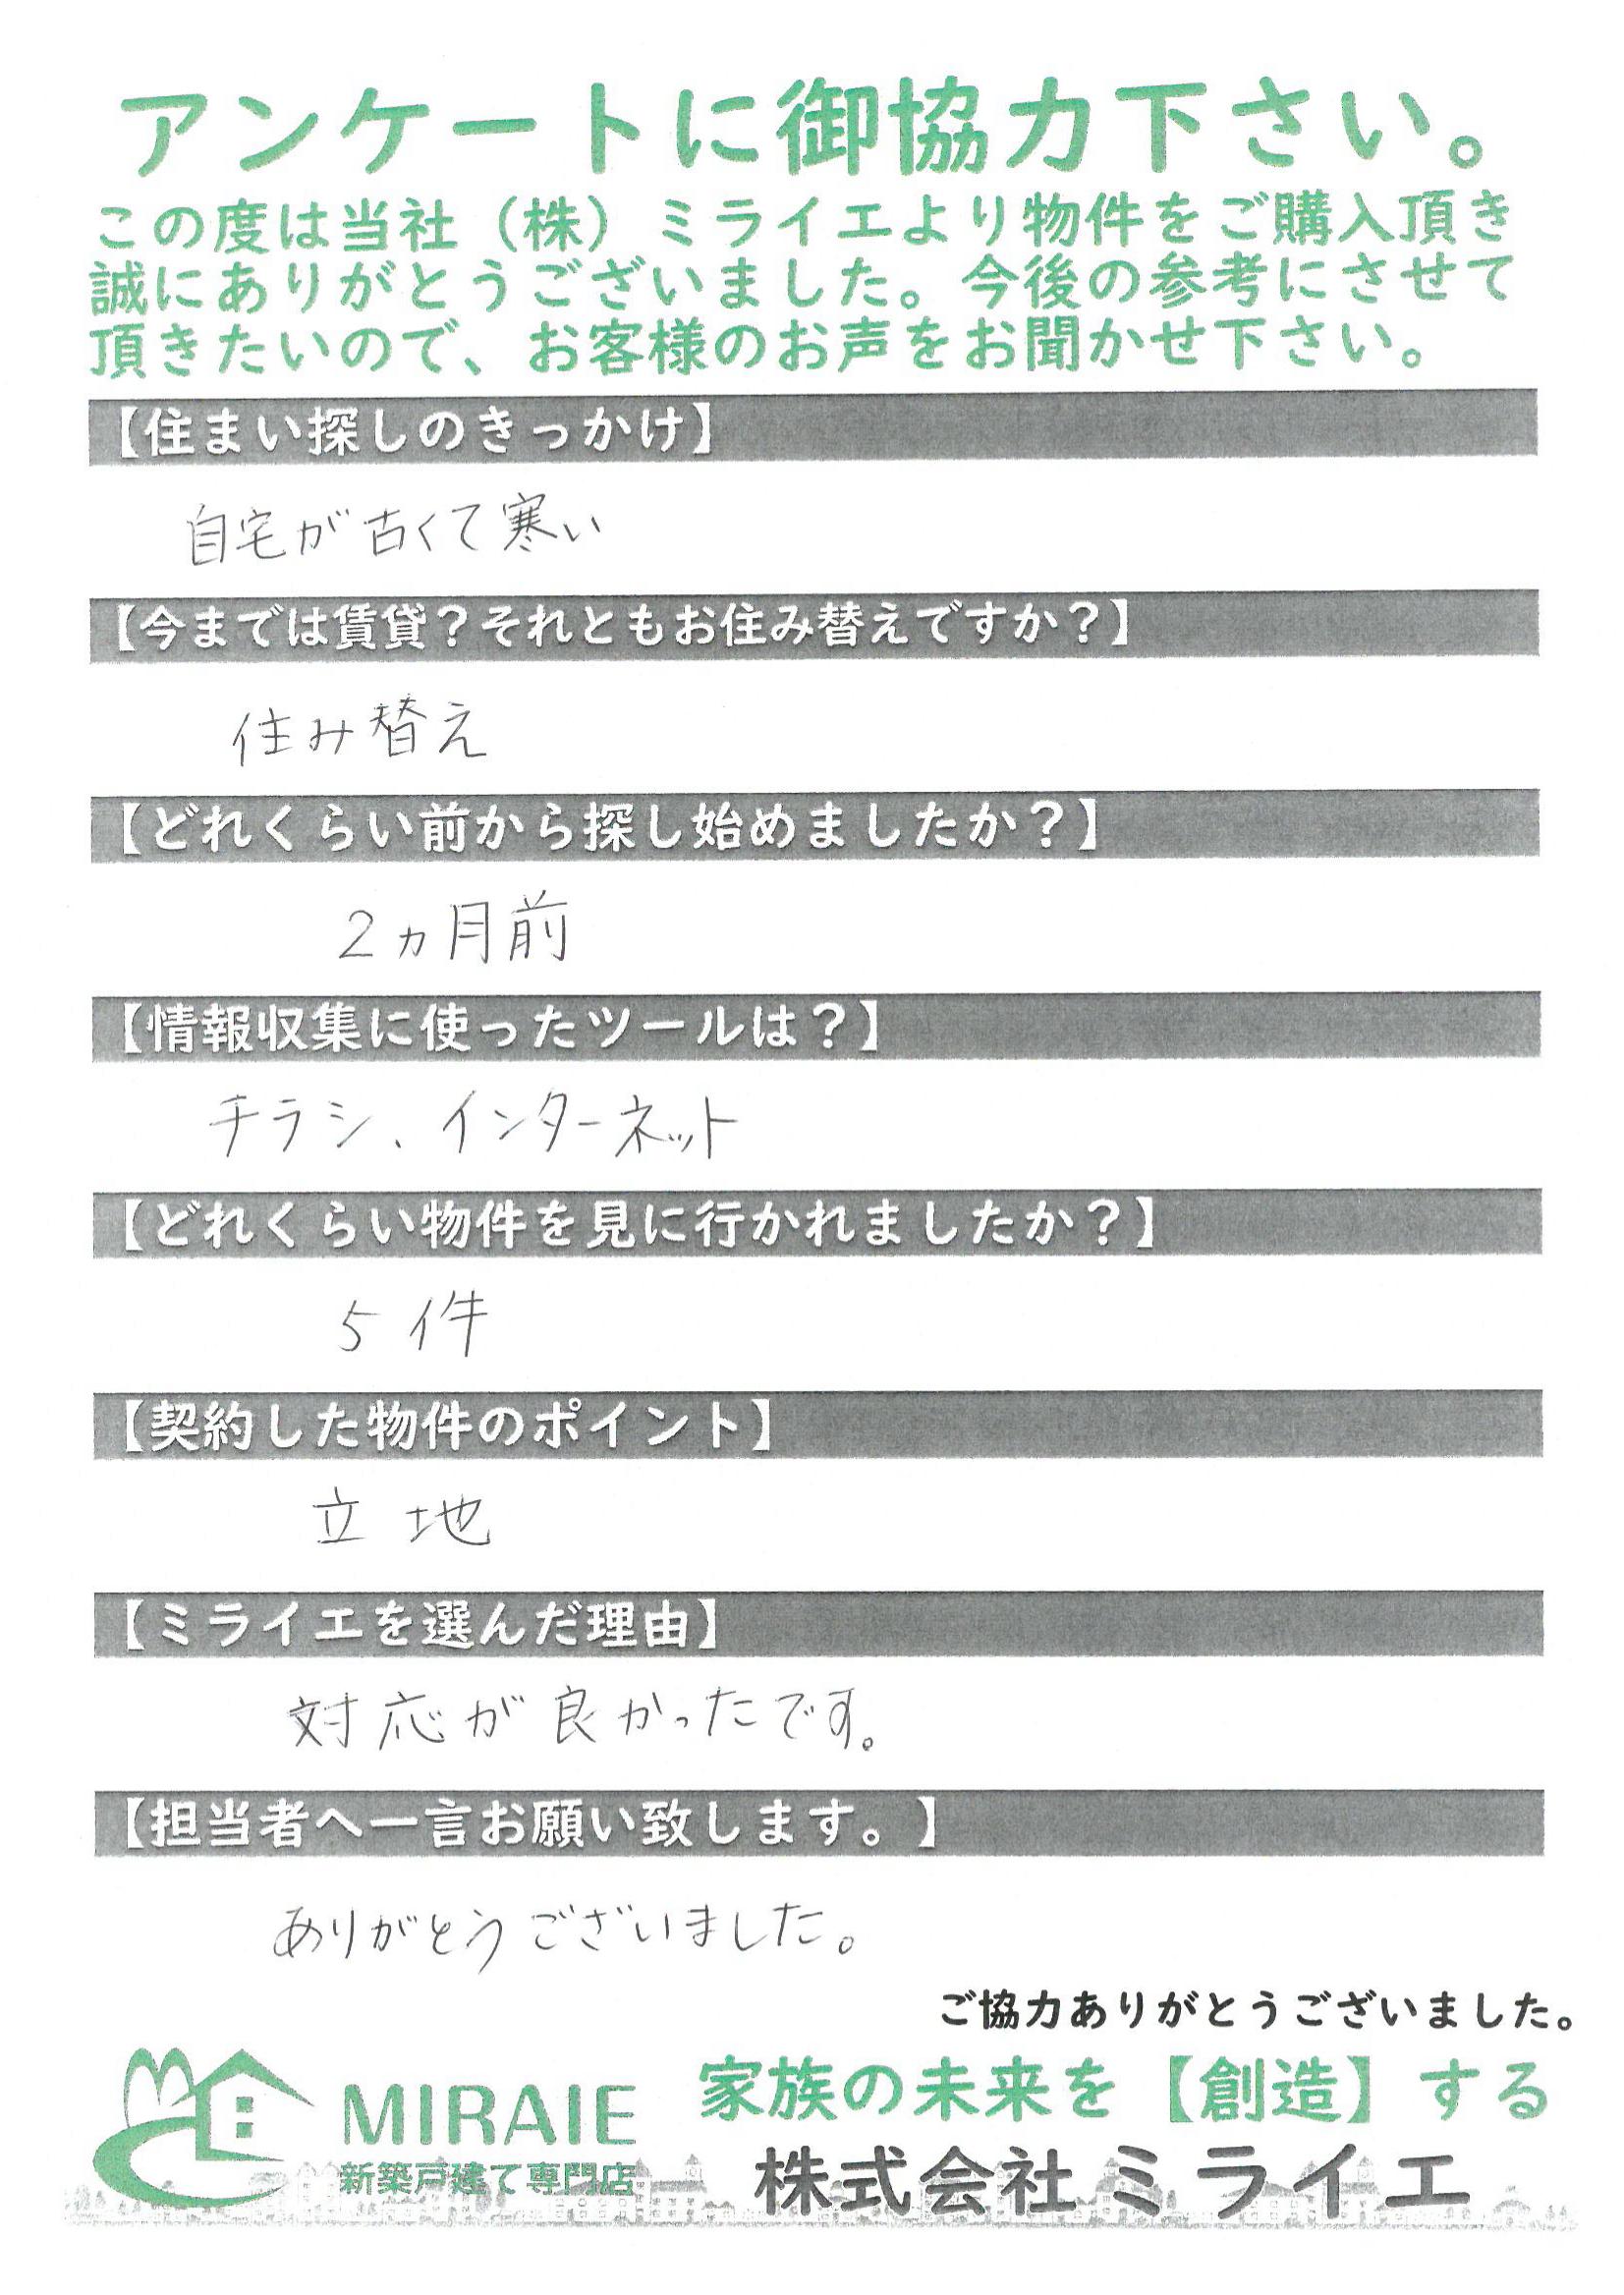 アンケートに御協力下さい。
この度は当社（株）ミライエより物件をご購入頂き
誠にありがとうございました。今後の参考にさせて
頂きたいので、お客様のお声をお聞かせ下さい。
【住まい探しのきっかけ】
自宅が古くて寒い
【今までは賃貸？それともお住み替えですか？】
住み替え
【どれくらい前から探し始めましたか？】
2ヵ月前
【情報収集に使ったツールは？】
チラシ、インターネット
【どれくらい物件を見に行かれましたか？】
5件
【契約した物件のポイント】
立地
【ミライエを選んだ理由】
対応が良かったです。
【担当者へ一言お願い致します。】
ありがとうございました。
ご協力ありがとうございました。
MIRAIE
新築戸建て専門店
家族の未来を【創造】する
株式会社ミライエ